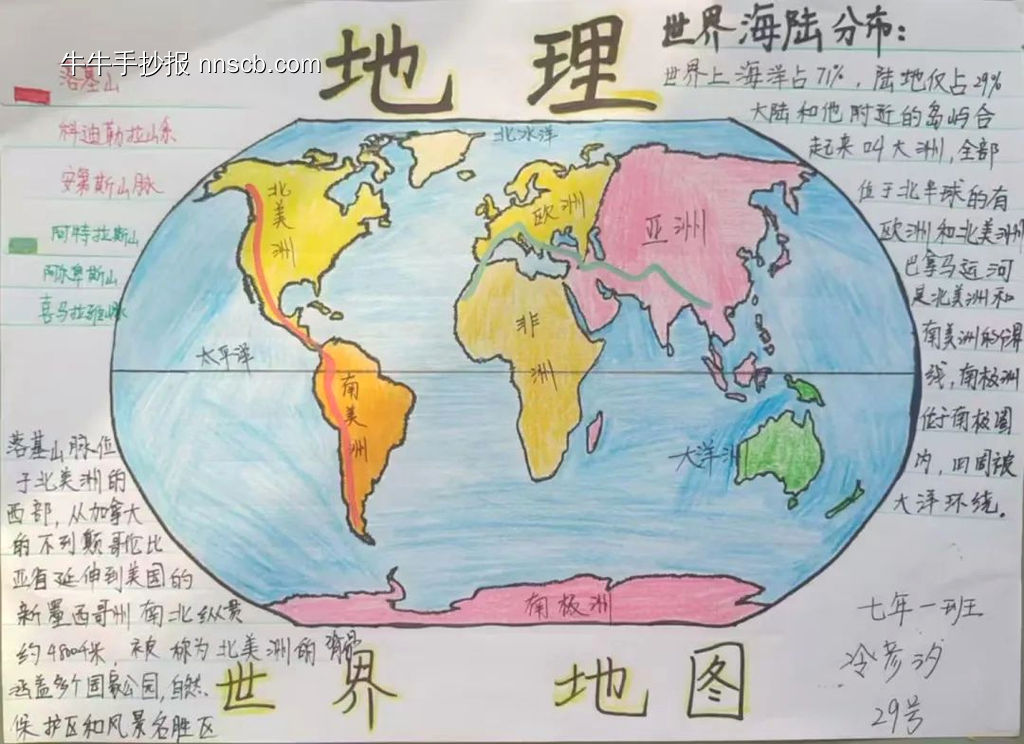 牛牛手抄报 nnscb.com
地理
世界海陆分布：
世界上海洋占71%，陆地仅占29%
大陆和他附近的岛屿合
起来叫大洲，全部
位于北半球的有
欧洲和北美洲
巴拿马运河
是北美洲和
南美洲的分界
线，南极洲
位于南极圈
内，四周被
大洋环绕。
落基山
科迪勒拉山系
安第斯山脉
阿特拉斯山
阿尔卑斯山
喜马拉雅山脉
北冰洋
北美洲
欧洲
亚洲
非洲
太平洋
南美洲
大洋洲
南极洲
落基山脉位
于北美洲的
西部，从加拿大
的不列颠哥伦比
亚省延伸到美国的
新墨西哥州南北纵贯
约4800千米，被称为北美洲的
涵盖多个国家公园，自然
保护区和风景名胜区
世界地图
七年一班
冷彦汐
29号